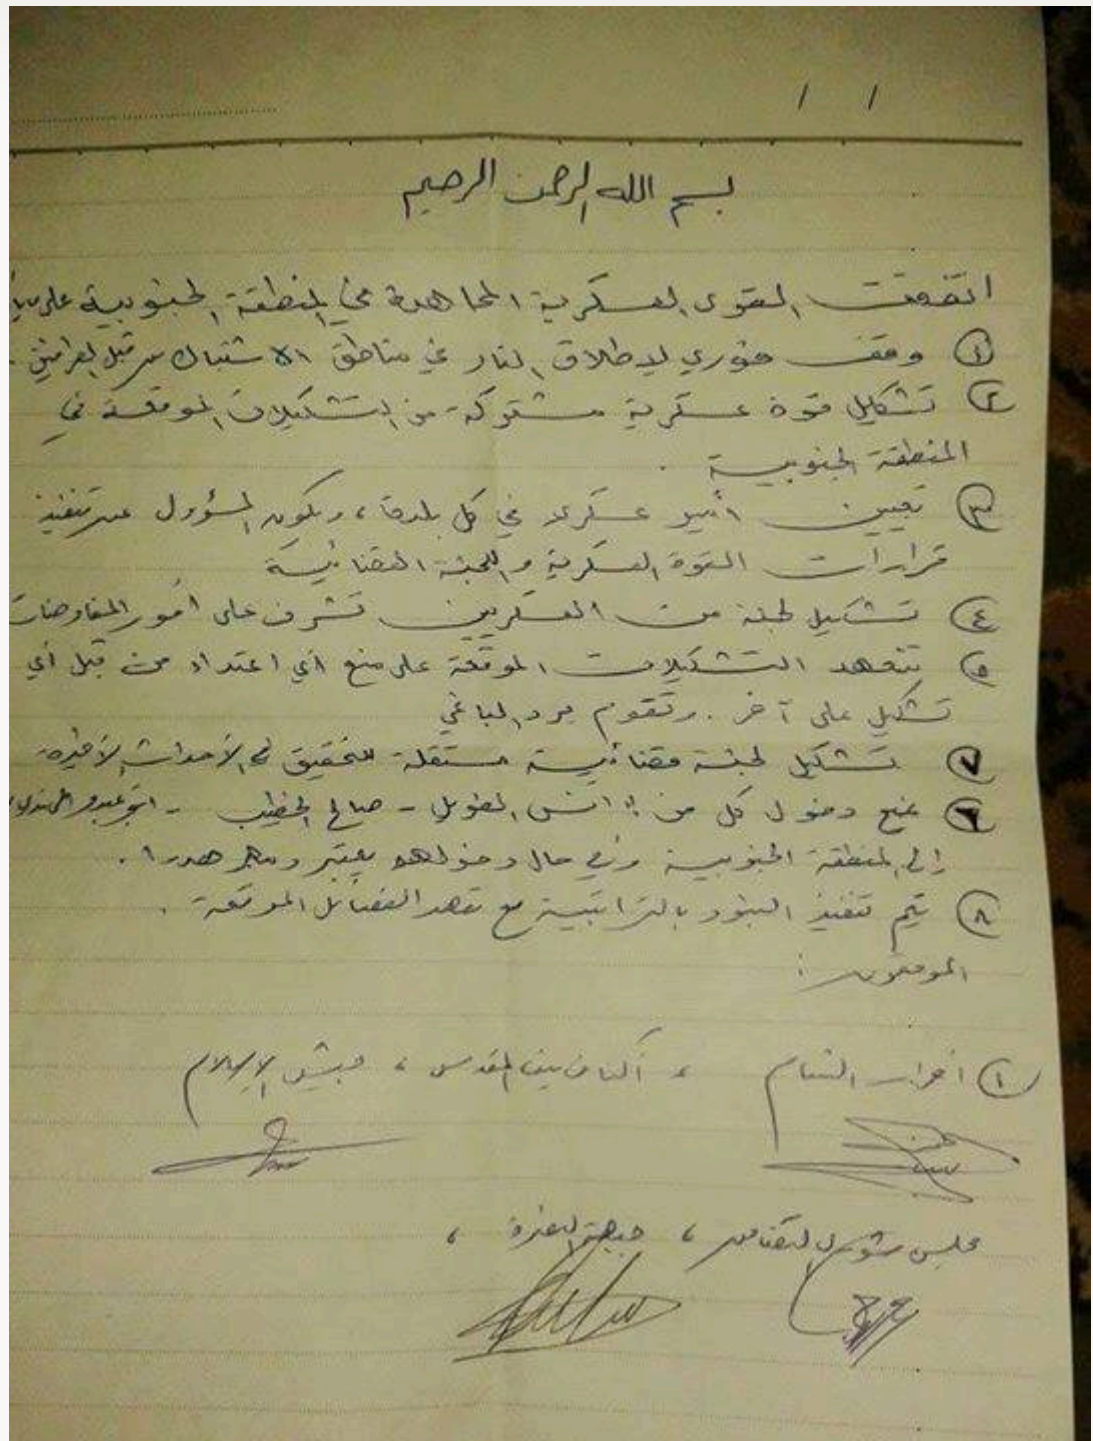 / /
بسم الله الرحمن الرحيم
اتفقت القوى العسكرية المجاهدة في المنطقة الجنوبية على
١ وقف فوري لإطلاق النار في مناطق الاشتباك من قبل الطرفين .
٢ تشكيل قوة عسكرية مشتركة من التشكيلات الموقعة في
المنطقة الجنوبية .
٣ تعيين أمير عسكري في كل بلدة ، ويكون المسؤول عن تنفيذ
قرارات القوة العسكرية واللجنة القضائية
٤ تشكيل لجنة من العسكريين تشرف على أمور المفاوضات
٥ تتعهد التشكيلات الموقعة على منع أي اعتداء من قبل أي
تشكيل على آخر . وتقوم برد الباغي
٧ تشكيل لجنة قضائية مستقلة للتحقيق في الأحداث الأخيرة
٦ منع دخول كل من : أنس الطويل - صالح الخطيب -
إلى المنطقة الجنوبية وفي حال دخولهم يعتبر دمهم هدرا .
٨ يتم تنفيذ البنود بالتراتبية مع تعهد الفصائل الموقعة .
الموقعون :
١ أحرار الشام ، أكناف بيت المقدس ، جيش الإسلام
مجلس شورى القنا ، جبهة النصرة ،